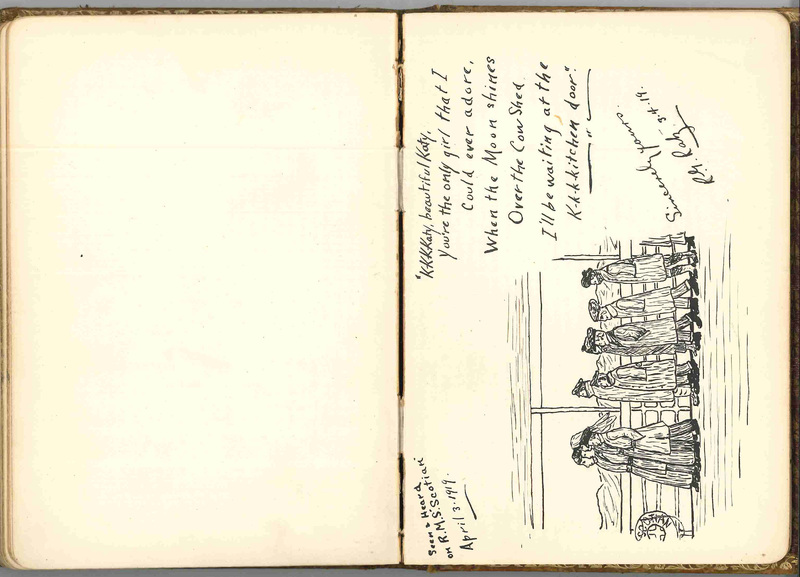 Seen & Heard
on R.M.S. Scotian
April 3. 1919.
"K.K.K.Katy, beautiful Katy,
You're the only girl that I
Could ever adore,
When the Moon shines
Over the Cow Shed
I'll be waiting at the
K-k-k-kitchen door".
Sincerely yours.
3.4.19.